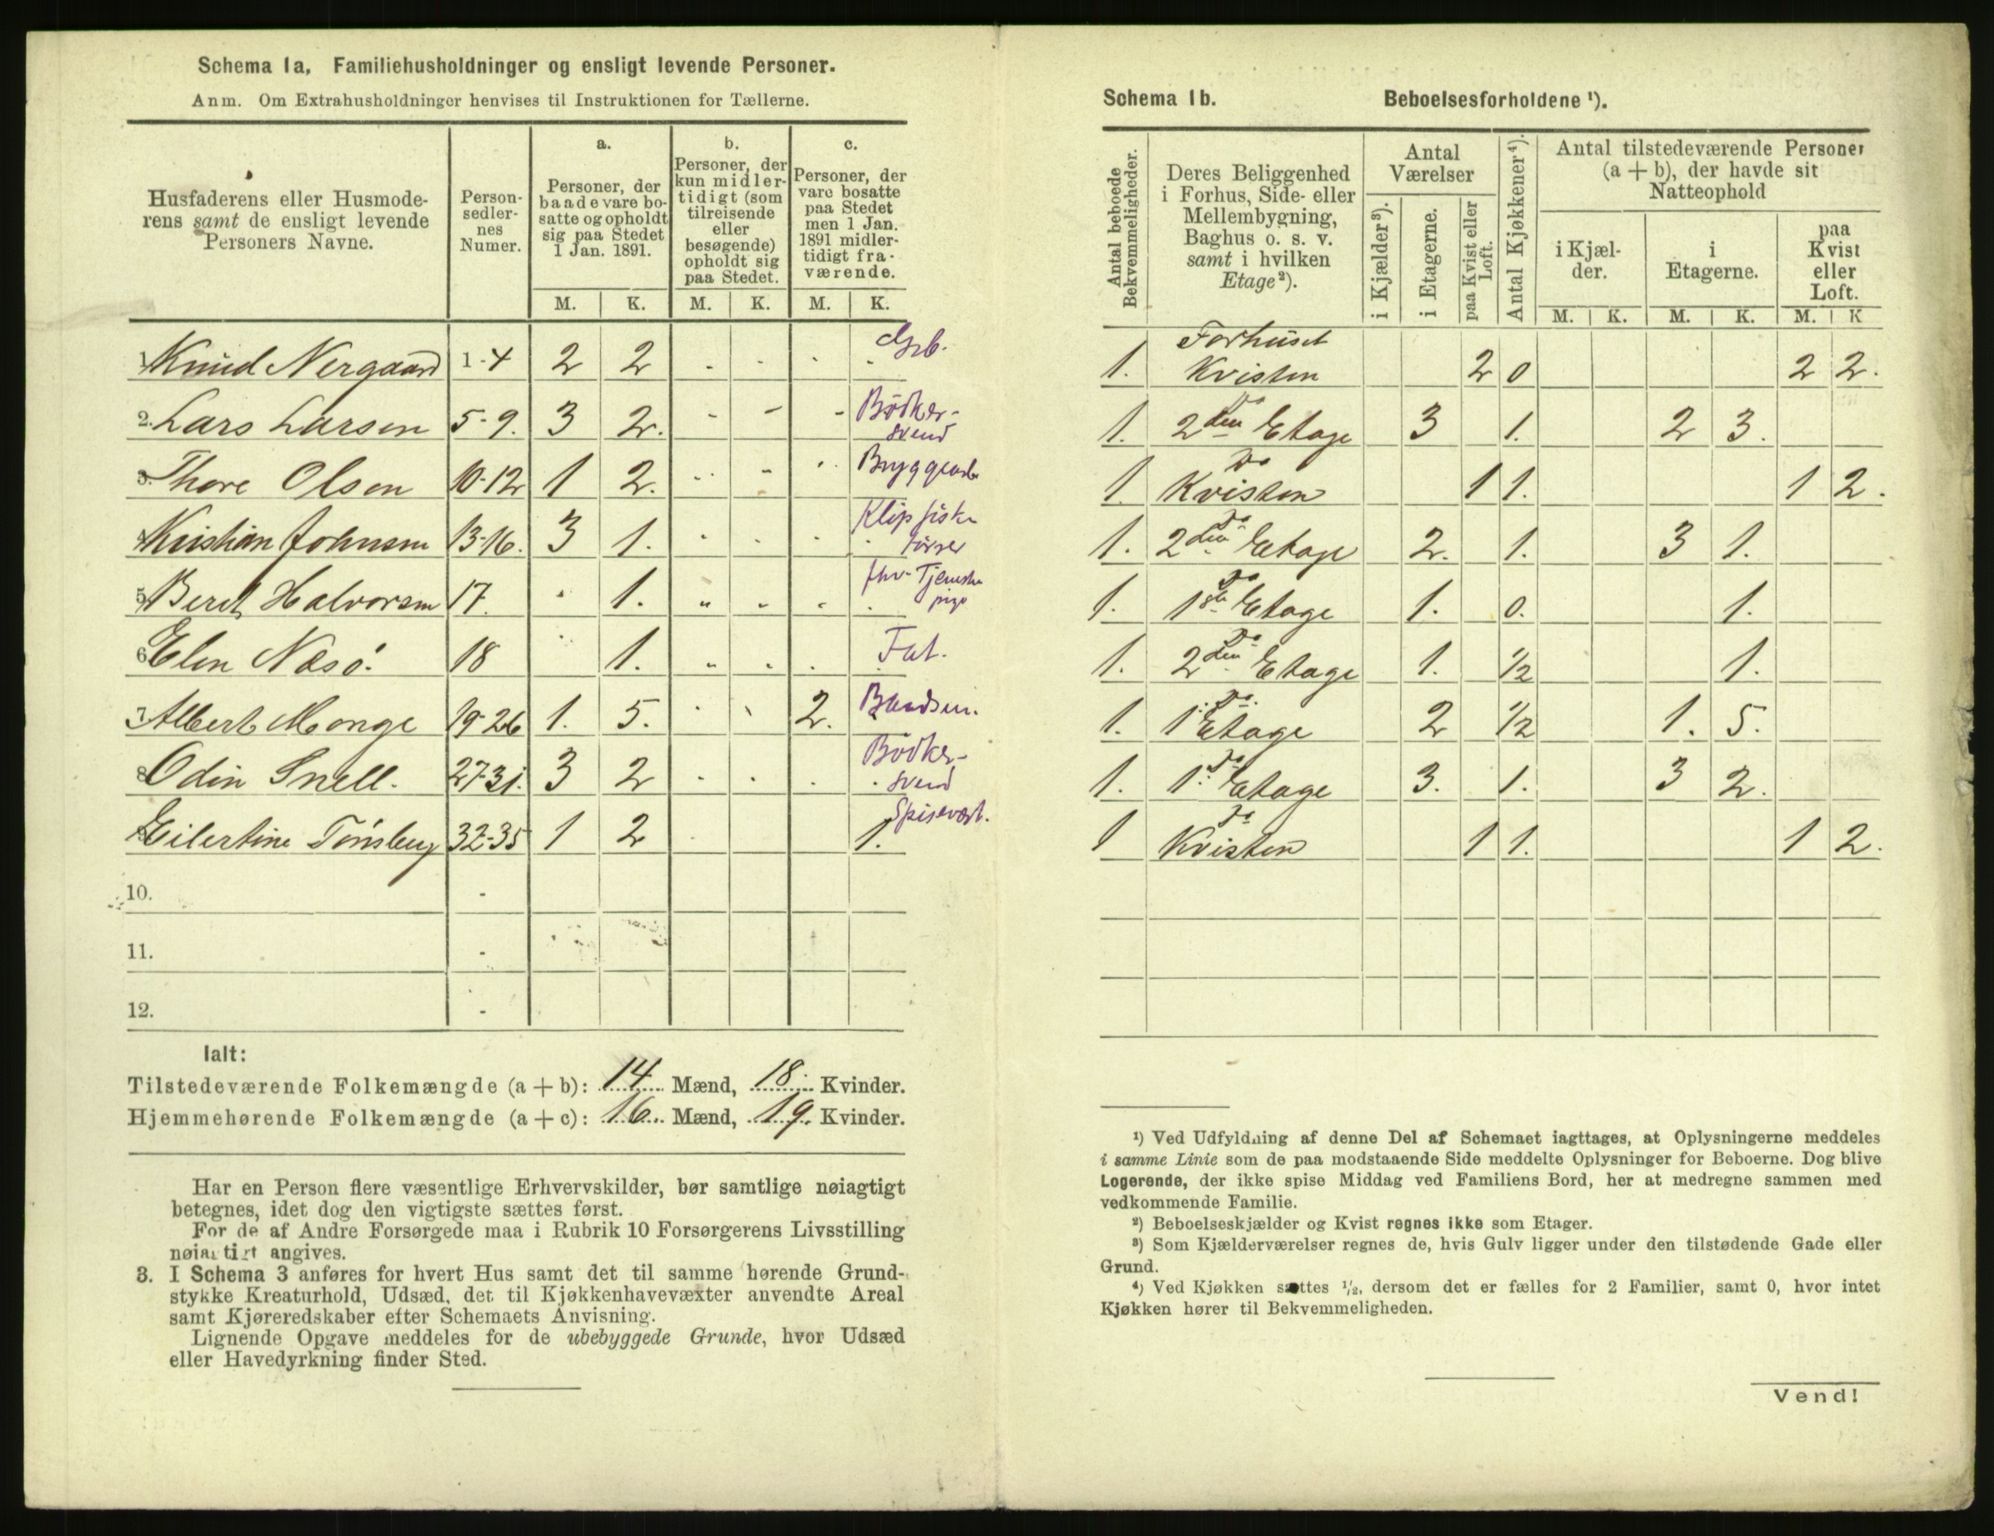 Schema 1a. Familiehusholdninger og ensligt levende Personer.
Anm. Om Extrahusholdninger henvises til Instruktionen for Tællerne.
Husfaderens eller Husmoderens samt de ensligt levende Personers Navne.
Personsedlernes Numer.
a. Personer, der baade vare bosatte og opholdt sig paa Stedet 1 Jan. 1891.
b. Personer, der kun midlertidigt (som tilreisende eller besøgende) opholdt sig paa Stedet.
c. Personer, der vare bosatte paa Stedet men 1 Jan. 1891 midlertidigt fraværende.
M. K. M. K. M. K.
1. Knud Nergaard 1-4 2 2 - - . .
2. Lars Larsen 5-9. 3 2. - - - Bødkersvend
3. Thore Olsen 10-12 1 2. - - . Bryggearb
4. Kristian Johnsen 13-16. 3 1. . . . . Klipfisktørrer
5. Beret Halvorsen 17. . 1. " " . . fhv. Tjenestepige
6 Elen Næsø. 18 1. " . . Fat.
7. Albert Monge 19-26 1. 5. . . 2.
8. Odin Snell. 27-31. 3 2 . . . . Bødkersvend
9. Eilertine Tønsberg 32-35 1 2 . 1. Spisevært.
10. -
11. -
12. -
Ialt:
Tilstedeværende Folkemængde (a + b): 14 Mænd, 18. Kvinder.
Hjemmehørende Folkemængde (a + c): 16. Mænd, 19. Kvinder.
Har en Person flere væsentlige Erhvervskilder, bør samtlige nøiagtigt
betegnes, idet dog den vigtigste sættes først.
For de af Andre Forsørgede maa i Rubrik 10 Forsørgerens Livsstilling
nøiagtigt angives.
3. I Schema 3 anføres for hvert Hus samt det til samme hørende Grund-
stykke Kreaturhold, Udsæd, det til Kjøkkenhavevæxter anvendte Areal
samt Kjøreredskaber efter Schemaets Anvisning.
Lignende Opgave meddeles for de ubebyggede Grunde, hvor Udsæd
eller Havedyrkning finder Sted.
Schema 1b. Beboelsesforholdene ¹).
Antal beboede Bekvemmeligheder.
Deres Beliggenhed i Forhus, Side- eller Mellembygning, Baghus o. s. v. samt i hvilken Etage ²).
Antal Værelser
i Kjælder ³).
i Etagerne.
paa Kvist eller Loft.
Antal Kjøkkener ⁴).
Antal tilstedeværende Personer (a + b), der havde sit Natteophold
i Kjælder.
i Etagerne.
paa Kvist eller Loft.
M. K. M. K. M. K
1. Forhuset Kvisten 2 0 2 2.
1. Do 2den Etage 3 1. 2 3.
1. Do Kvisten 1 1. 1 2.
1. Do 2den Etage 2. 1. 3 1.
1. Do 1ste Etage 1. 0. 1.
1. Do 2den Etage 1. 1/2 1.
1. Do 1. Etage 2 1/2 1. 5.
1. Do 1. Etage 3. 1. 3 2.
1 Do Kvisten 1 1. 1 2.
¹) Ved Udfyldning af denne Del af Schemaet iagttages, at Oplysningerne meddeles
i samme Linie som de paa modstaaende Side meddelte Oplysninger for Beboerne. Dog blive
Logerende, der ikke spise Middag ved Familiens Bord, her at medregne sammen med
vedkommende Familie.
²) Beboelseskjælder og Kvist regnes ikke som Etager.
³) Som Kjælderværelser regnes de, hvis Gulv ligger under den tilstødende Gade eller
Grund.
⁴) Ved Kjøkken sættes ¹/₂, dersom det er fælles for 2 Familier, samt 0, hvor intet
Kjøkken hører til Bekvemmeligheden.
Vend!